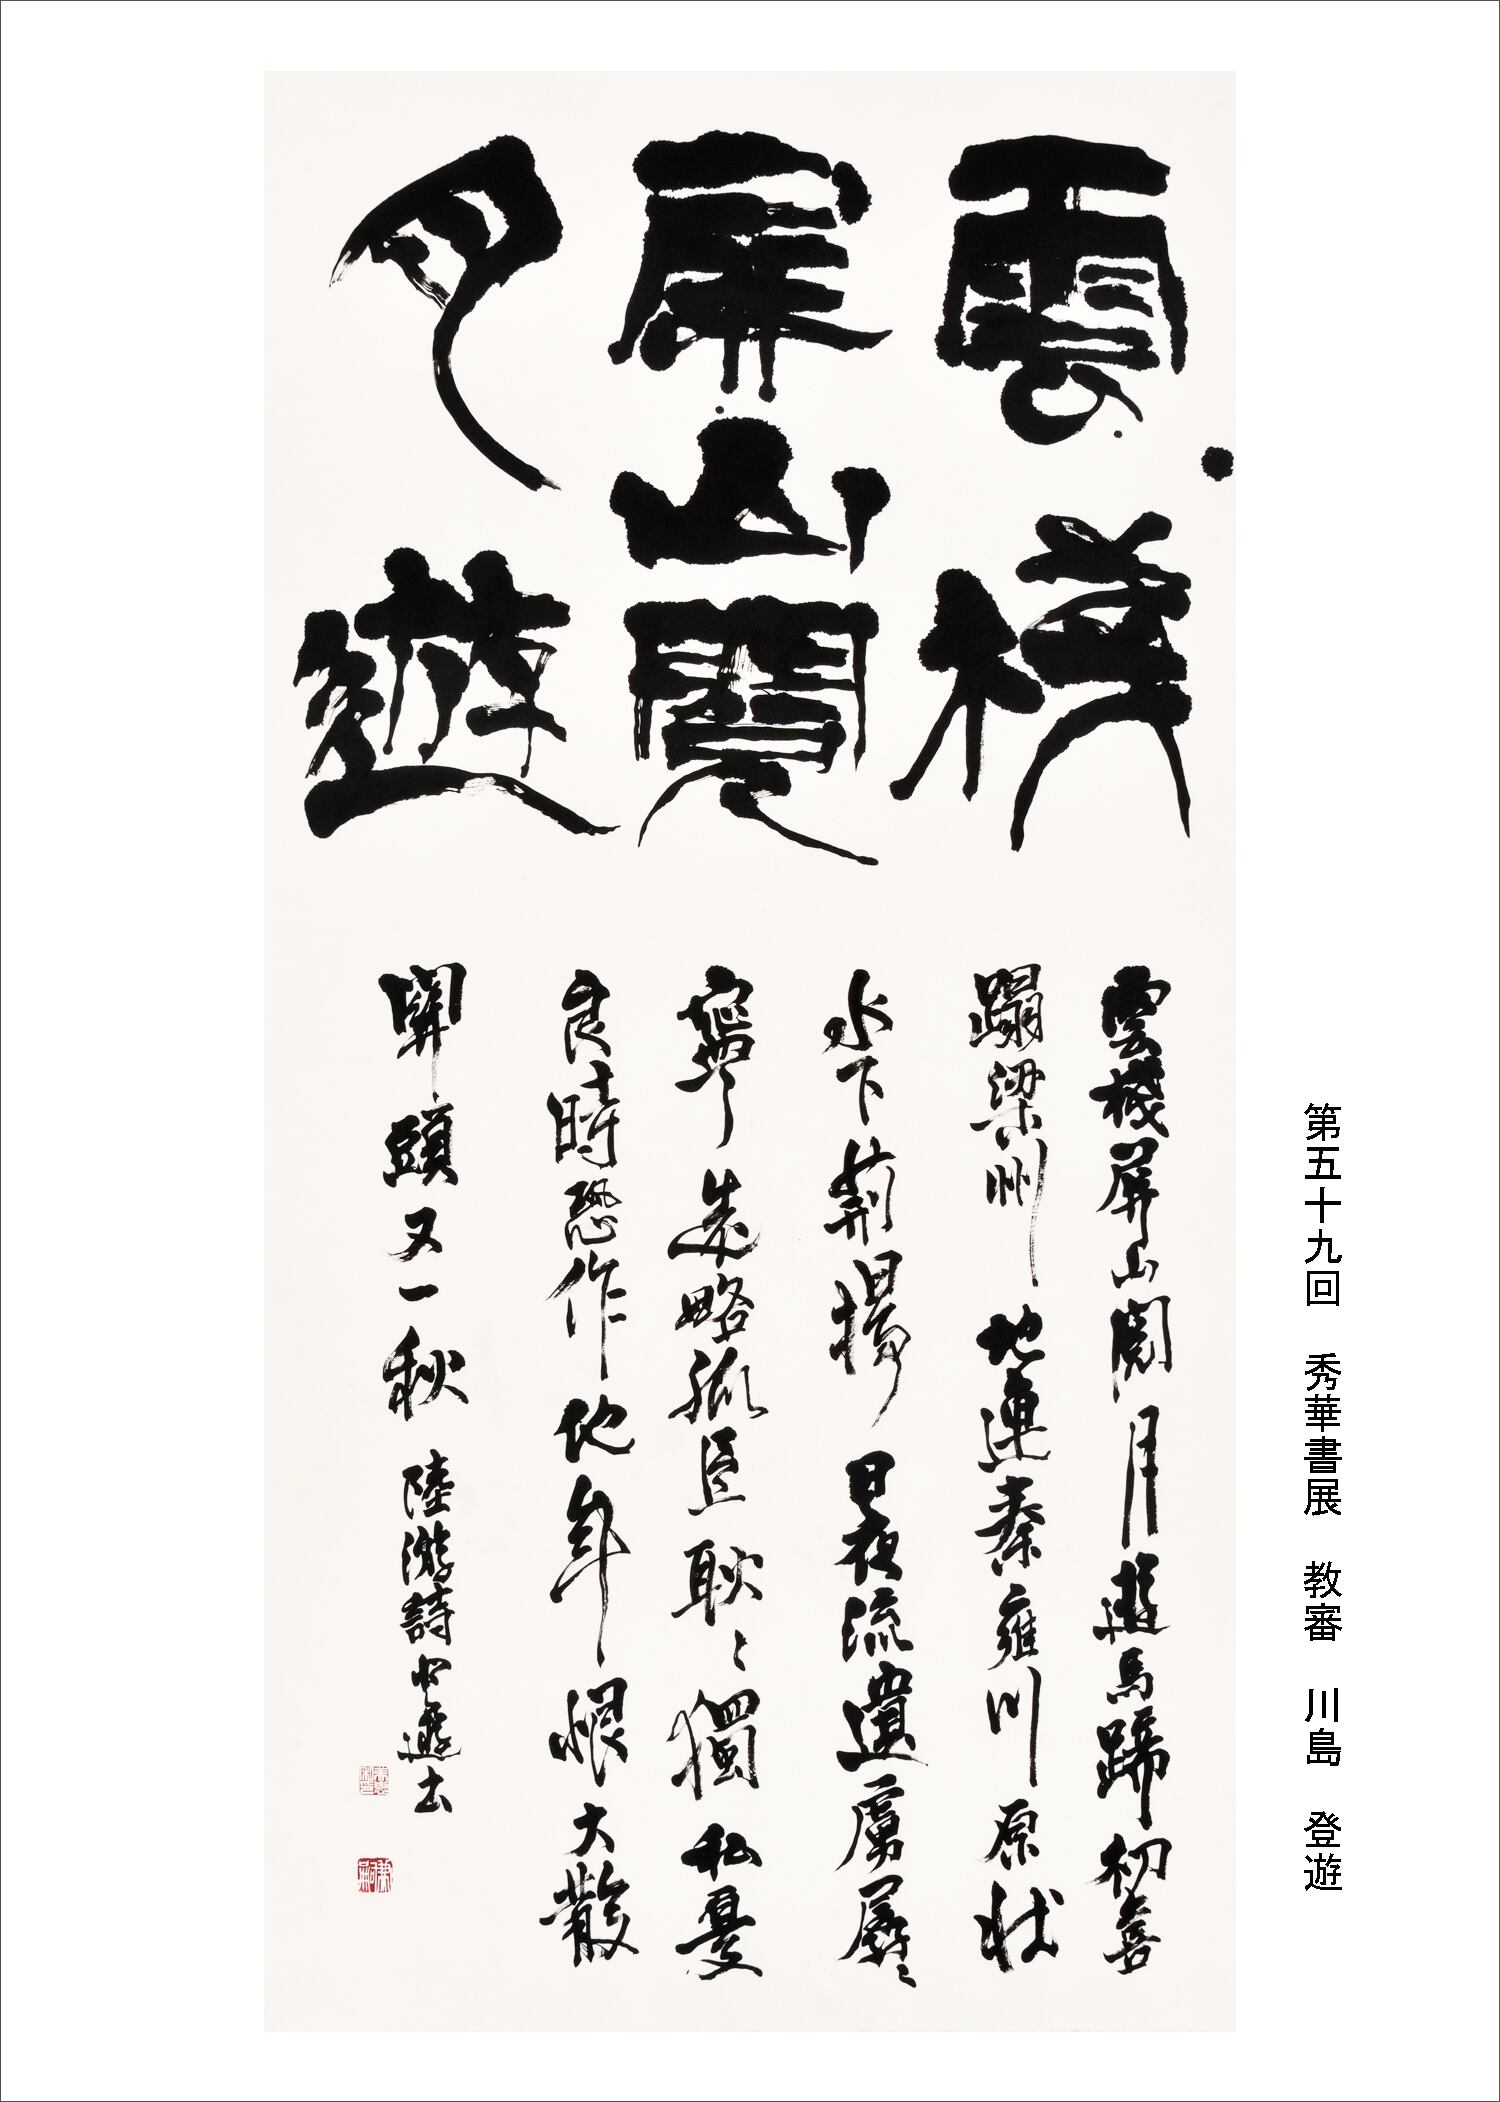 雲棧
屏山閱
月遊
雲棧屏山閱月遊馬蹄初喜
蹋梁州地連秦雍川原壯
水下荊揚日夜流遺虜孱〻
寧遠略孤臣耿〻獨私憂
良時恐作他年恨大散
關頭又一秋 陸游詩
第五十九回 秀華書展 教審 川島 登遊